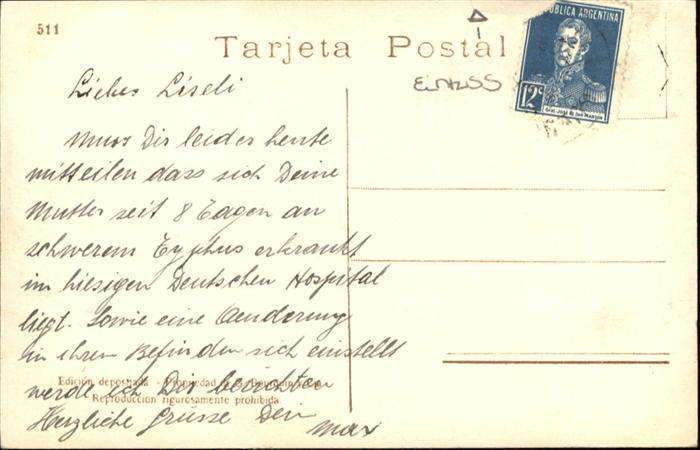 511
Tarjeta Postal
REPUBLICA ARGENTINA
12c
GRAL. JOSÉ DE SAN MARTIN
Liebes Liseli
Muss Dir leider heute
mitteilen dass sich Deine
Mutter seit 8 Tagen an
schwerem Typhus erkrankt
im hiesigen Deutschen Hospital
liegt. Sowie eine Aenderung
in ihrem Befinden sich einstellt
werde ich Dir berichten
Edición depositada - Propiedad
Reproducción rigurosamente prohibida
Herzliche Grüsse Dein
Max